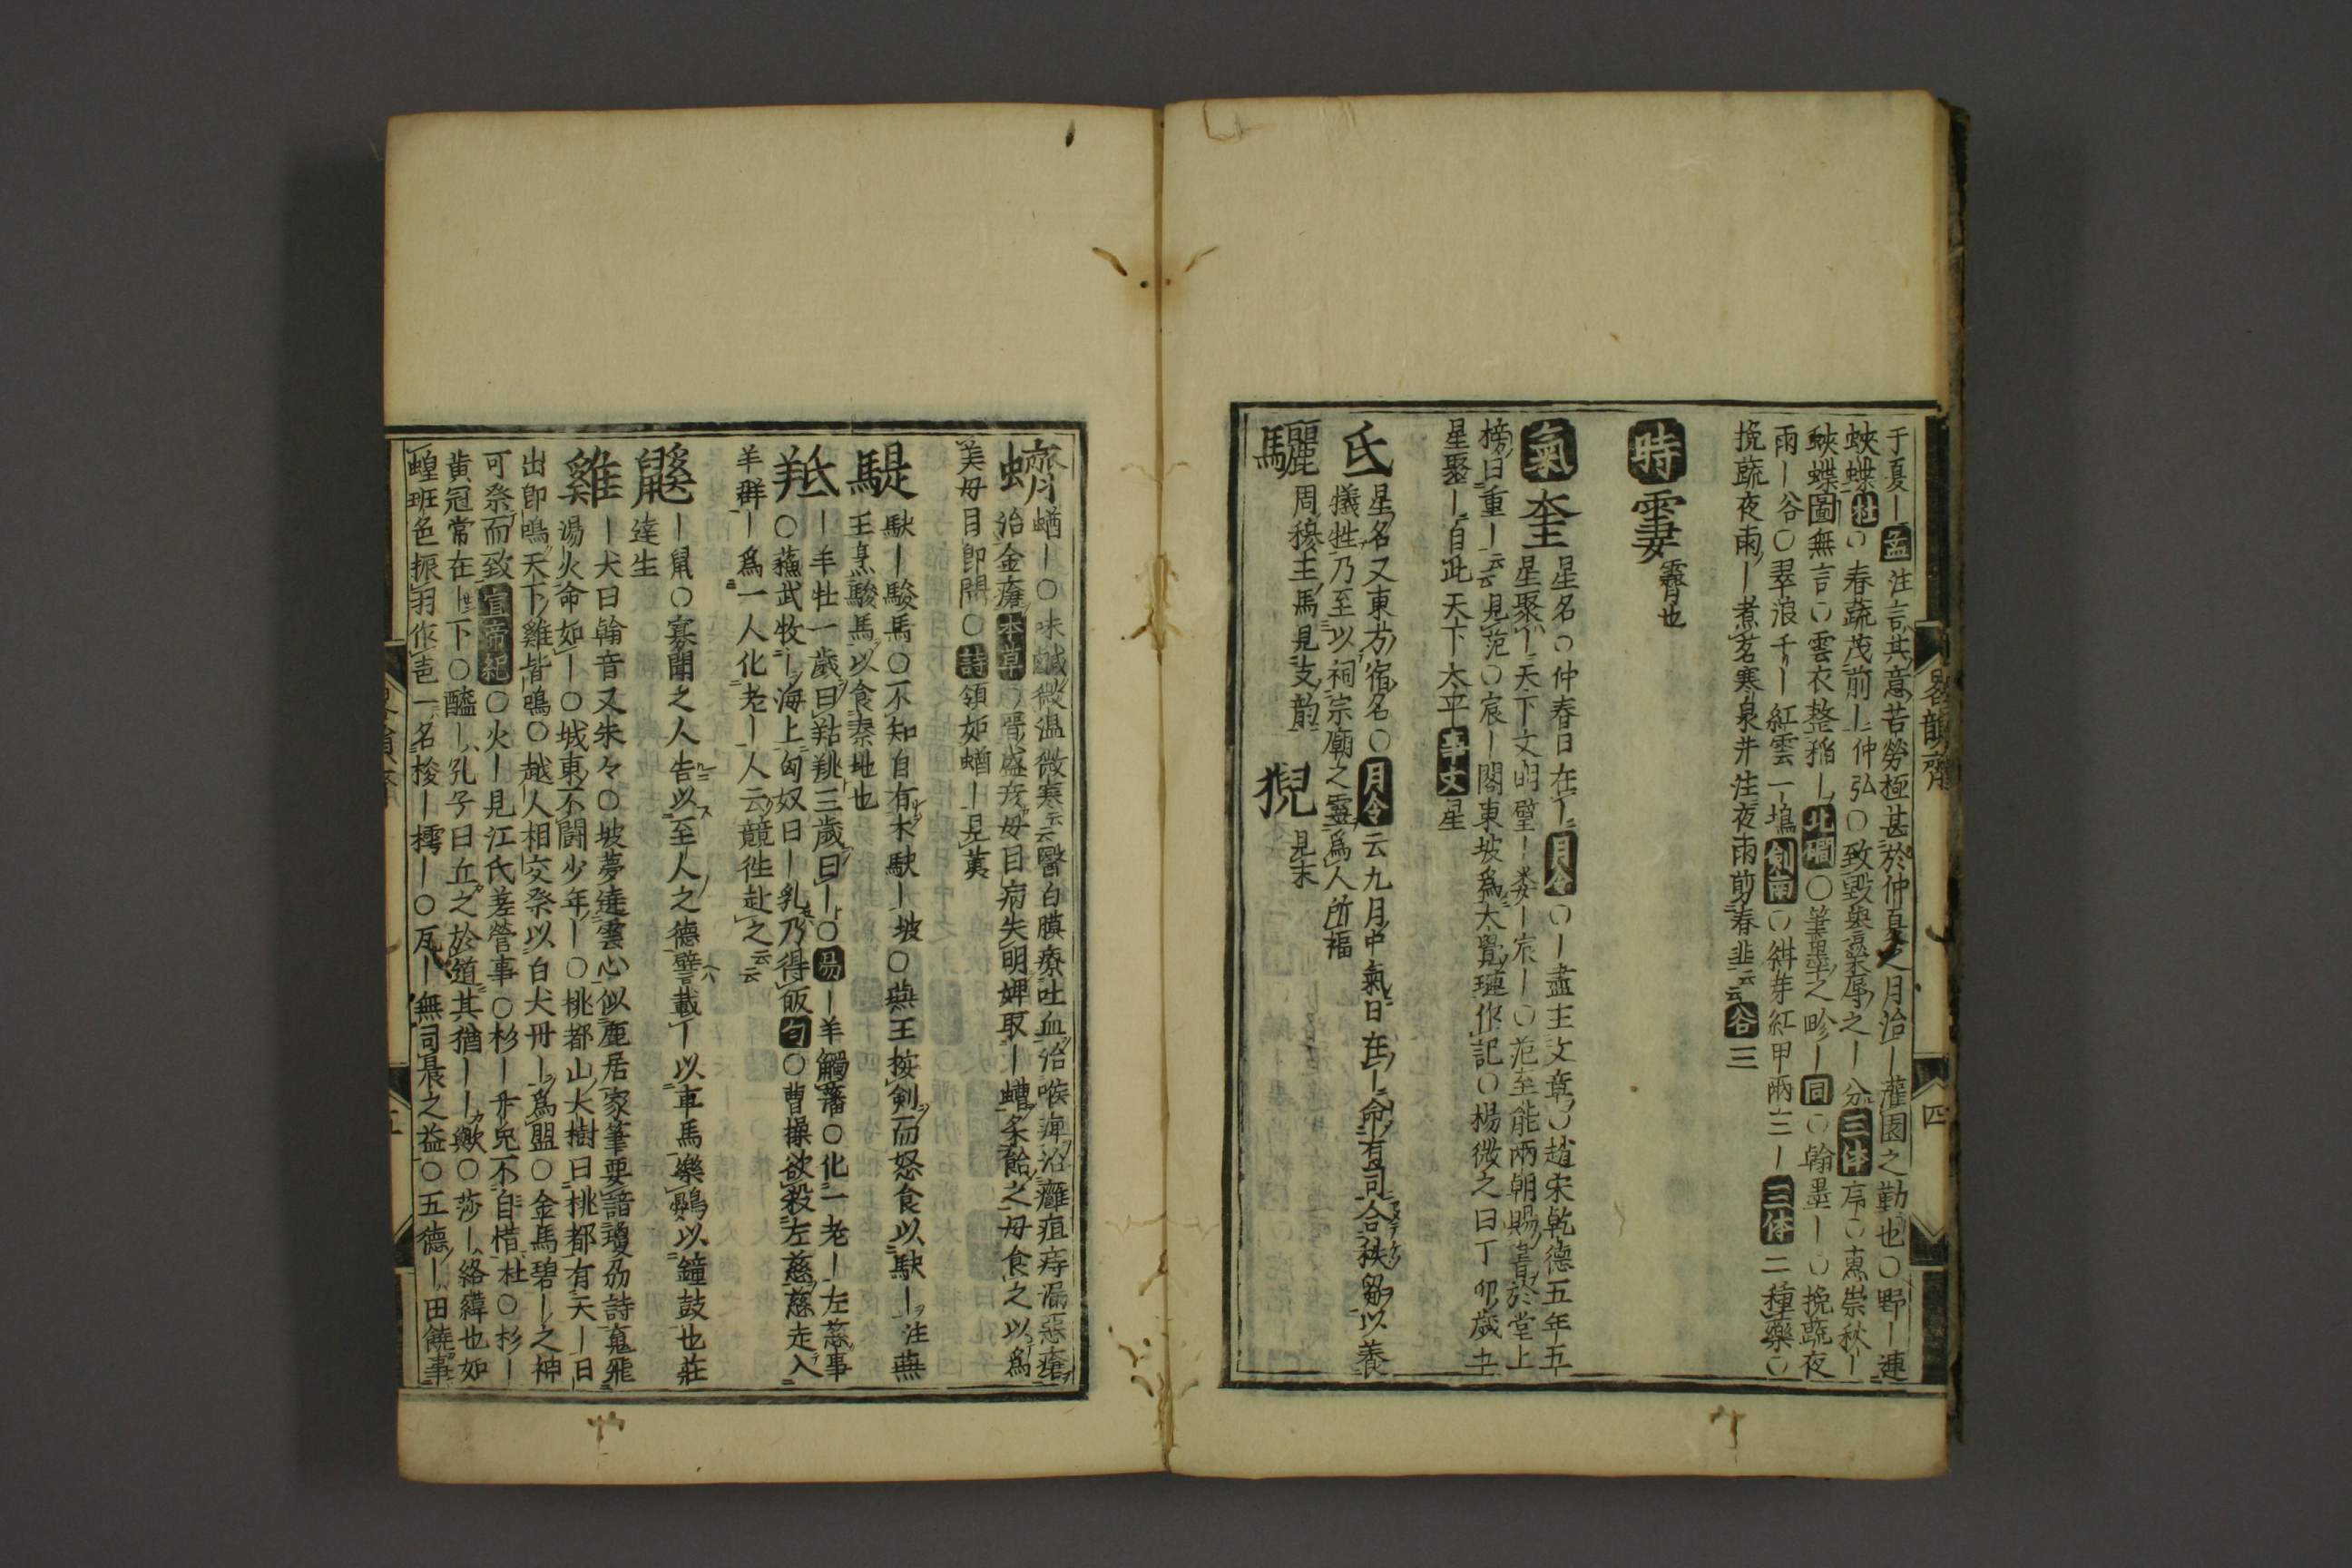 于夏｜孟注言其意苦勞極甚於仲夏之月治｜灌園之勤也○野｜連
蛺蝶杜○春蔬茂前｜仲弘○致毀與譽榮辱之｜分三体序○嵩崇秋｜
蛺蝶圖無言○雲衣整稻｜北磵○筆墨之畛｜同○翰墨｜○挽蔬夜
雨｜谷○翠浪千｜紅雲一塢劍南○斜芽紅甲兩三｜三体二種藥○
挽蔬夜雨｜煮茗寒泉井注夜雨剪春韭云云谷三
時霋霽也
氣奎星名○仲春日在｜月令○｜盡主文章○趙宋乾德五年五
星聚｜天下文明壁｜婁｜宸｜○范至能兩朝賜書於堂上
榜曰重｜云云見范○宸｜閣東坡爲大覺璉作記○楊徽之曰丁卯歲五
星聚｜自此天下太平事文星
氐星名又東方宿名○月令云九月中氣日在｜命有司合秩芻以養
犧牲乃至以祠宗廟之靈爲人所福
驪周穆王馬見支韵 猊見末
畧韻齊 四
蠐蝤｜○味鹹微温微寒云云醫白膜療吐血治喉痺治癰疽痔漏惡瘡
治金瘡本草○晉盛彦母目病失明婢取｜螬炙飴之母食之以爲
美母目即開○詩領如蝤｜見荑
騠駃｜駿馬○不知自有木駃｜坡○燕王按劍而怒食以駃｜注燕
王烹駿馬以食秦地也
羝｜羊牡一歲曰𦍩羝三歲曰｜○易｜羊觸藩○化一老｜左慈事
○蘓武牧｜海上匈奴曰｜乳乃得皈句○曹操欲殺左慈慈走入
羊群｜爲一人化老｜人云競徃赴之云云
鼷｜鼠○寡聞之人告以至人之德譬載｜以車馬樂鷃以鐘鼓也莊
達生
雞｜犬曰翰音又朱々○坡夢達雲心似鹿居家筆要諳瓊劦詩寬飛
湯火命如｜○城東不鬪少年｜○桃都山大樹曰桃都有天｜日
出即鳴天下雞皆鳴○越人相交祭以白犬丹｜爲盟○金馬碧｜之神
可祭而致宣帝紀○火｜見江氏差營事○杉｜乍兒不自惜杜○杉｜
黄冠常在｜下○醯｜孔子曰丘之於道其猶｜｜歟○莎｜絡緯也如
蝗班色振羽作声一名梭｜樗｜○瓦｜無司晨之益○五德｜田饒事